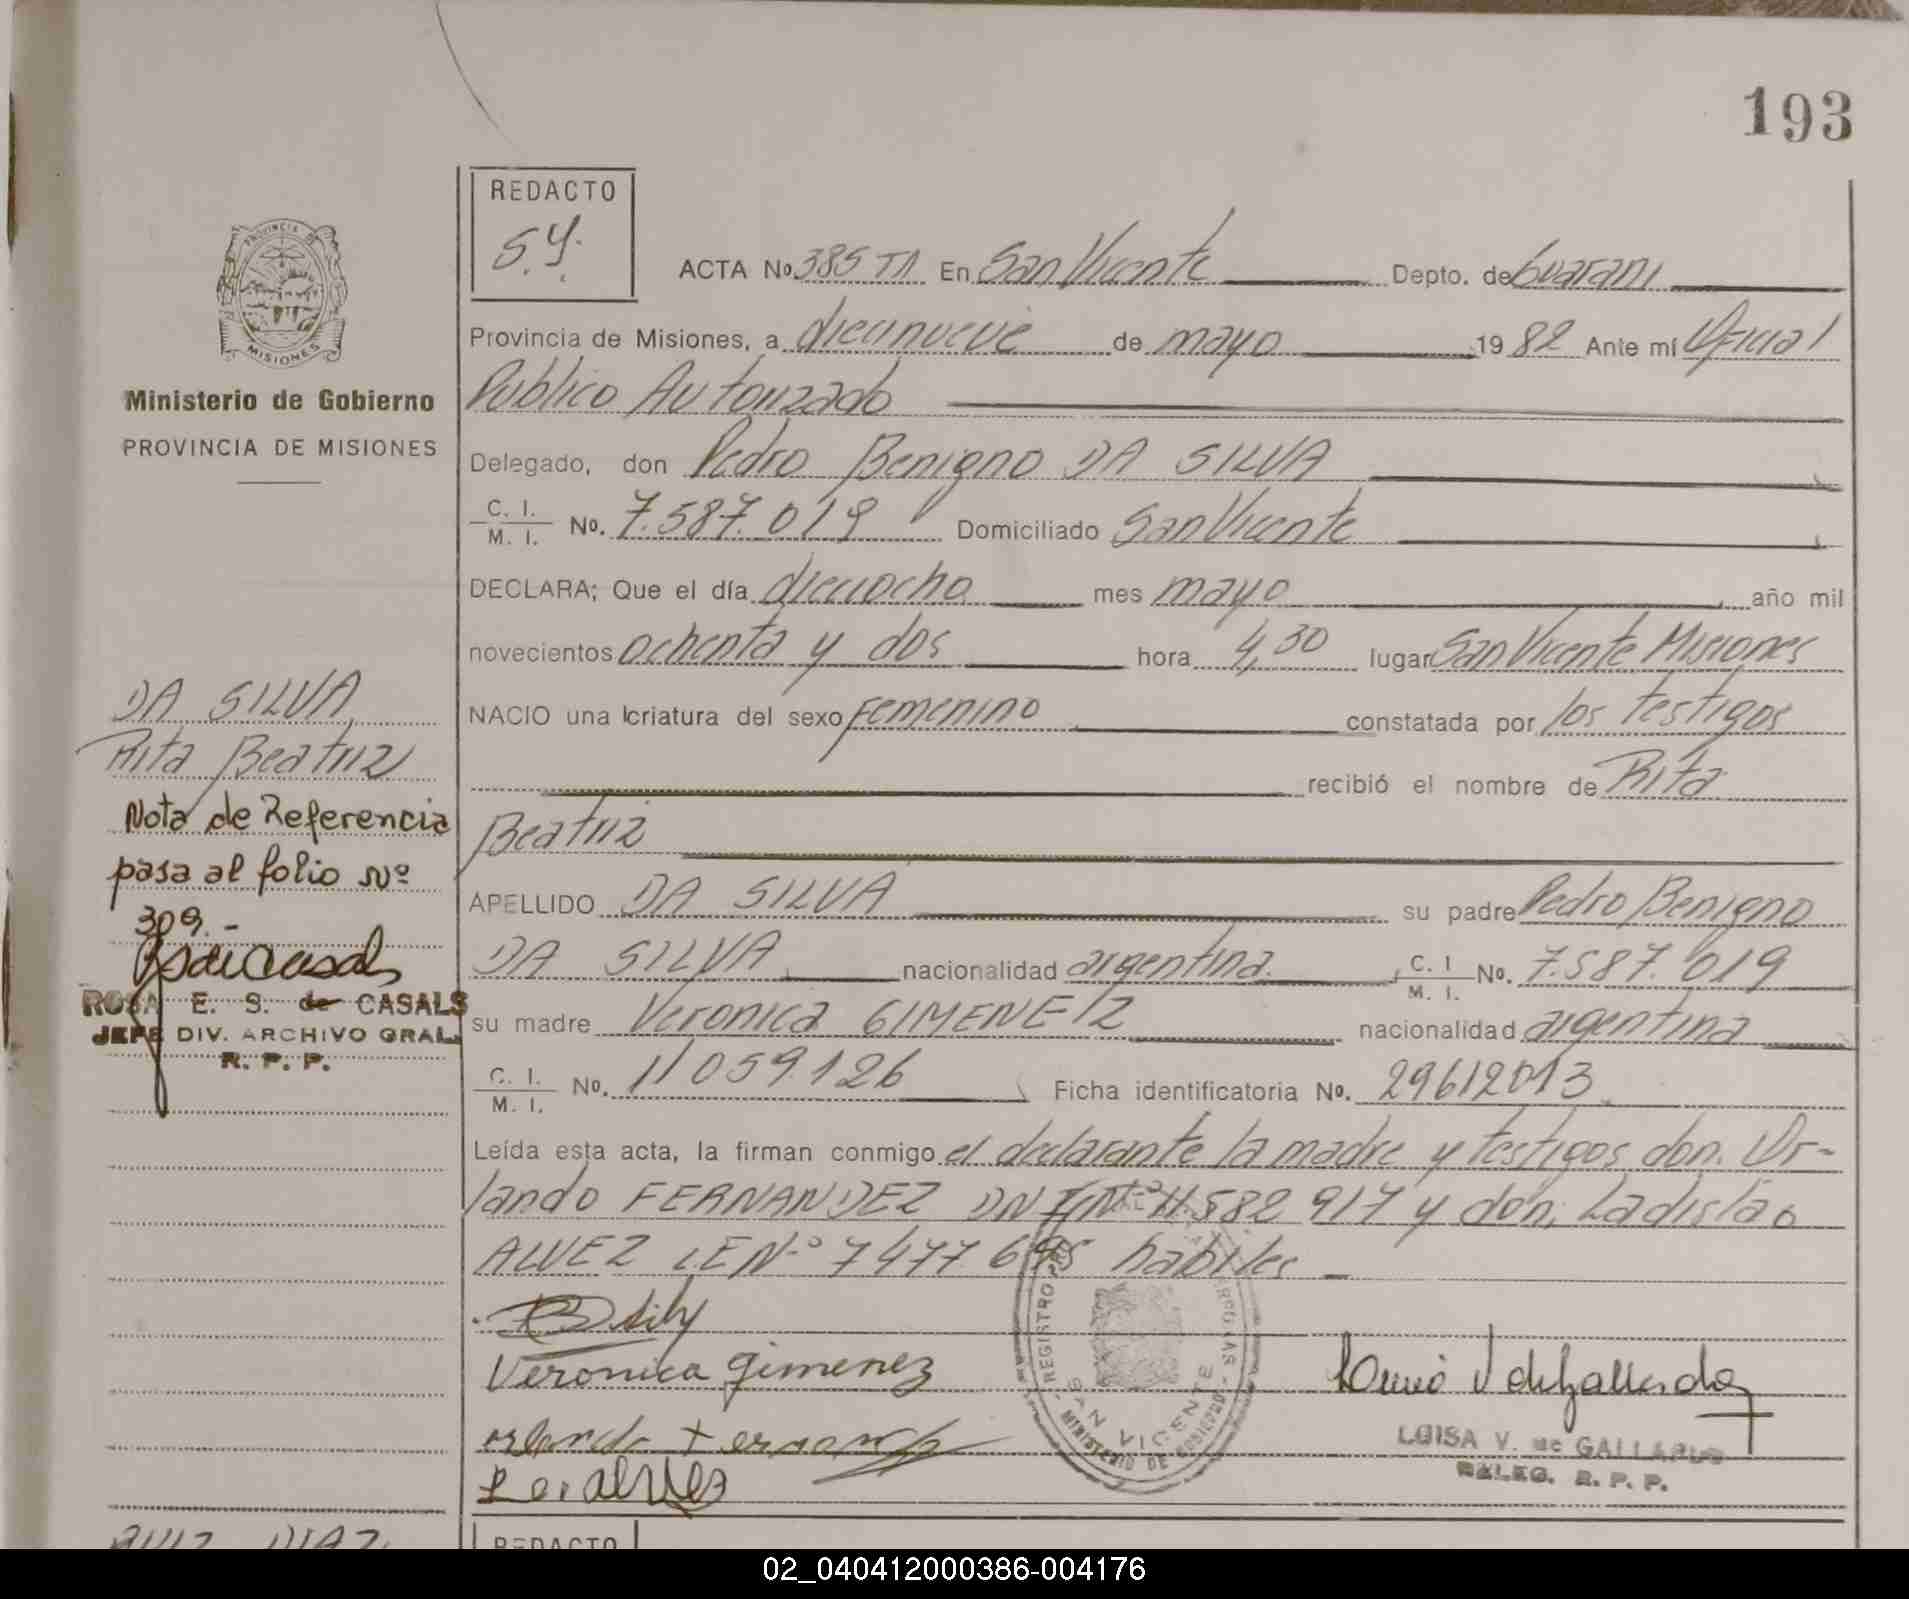 193
REDACTO
S.Y.
PROVINCIA DE
MISIONES
Ministerio de Gobierno
PROVINCIA DE MISIONES
ACTA No 385 TA En San Vicente Depto. de Guarani
Provincia de Misiones, a diecinueve de mayo 19 82 Ante mí Oficial
Publico Autorizado
Delegado, don Pedro Benigno DA SILVA
C. I.
M. I. No. 7.587.019 Domiciliado San Vicente
DECLARA; Que el día dieciocho mes mayo año mil
novecientos ochenta y dos hora 4,30 lugar San Vicente Misiones
NACIO una criatura del sexo femenino constatada por los testigos
recibió el nombre de Rita
Beatriz
APELLIDO DA SILVA su padre Pedro Benigno
DA SILVA nacionalidad argentina C. I
M. I. No. 7.587.019
su madre Veronica GIMENEZ nacionalidad argentina
C. I.
M. I. No. 11059.126 Ficha identificatoria No. 29612013
Leída esta acta, la firman conmigo el declarante la madre y testigos don. Or-
lando FERNANDEZ DNI Nº 11.582 917 y don, Ladislao
ALVEZ LE Nº 7477695 habiles
Veronica Gimenez
REGISTRO
SAN VICENTE
MINISTERIO DE GOBIERNO
LUISA V. de GALLARDO
DELEG. R. P. P.
DA SILVA
Rita Beatriz
Nota de Referencia
pasa al folio Nº
309.-
ROSA E. S. de CASALS
JEFE DIV. ARCHIVO GRAL.
R. P. P.
RUIZ DIAZ
REDACTO
02_040412000386-004176